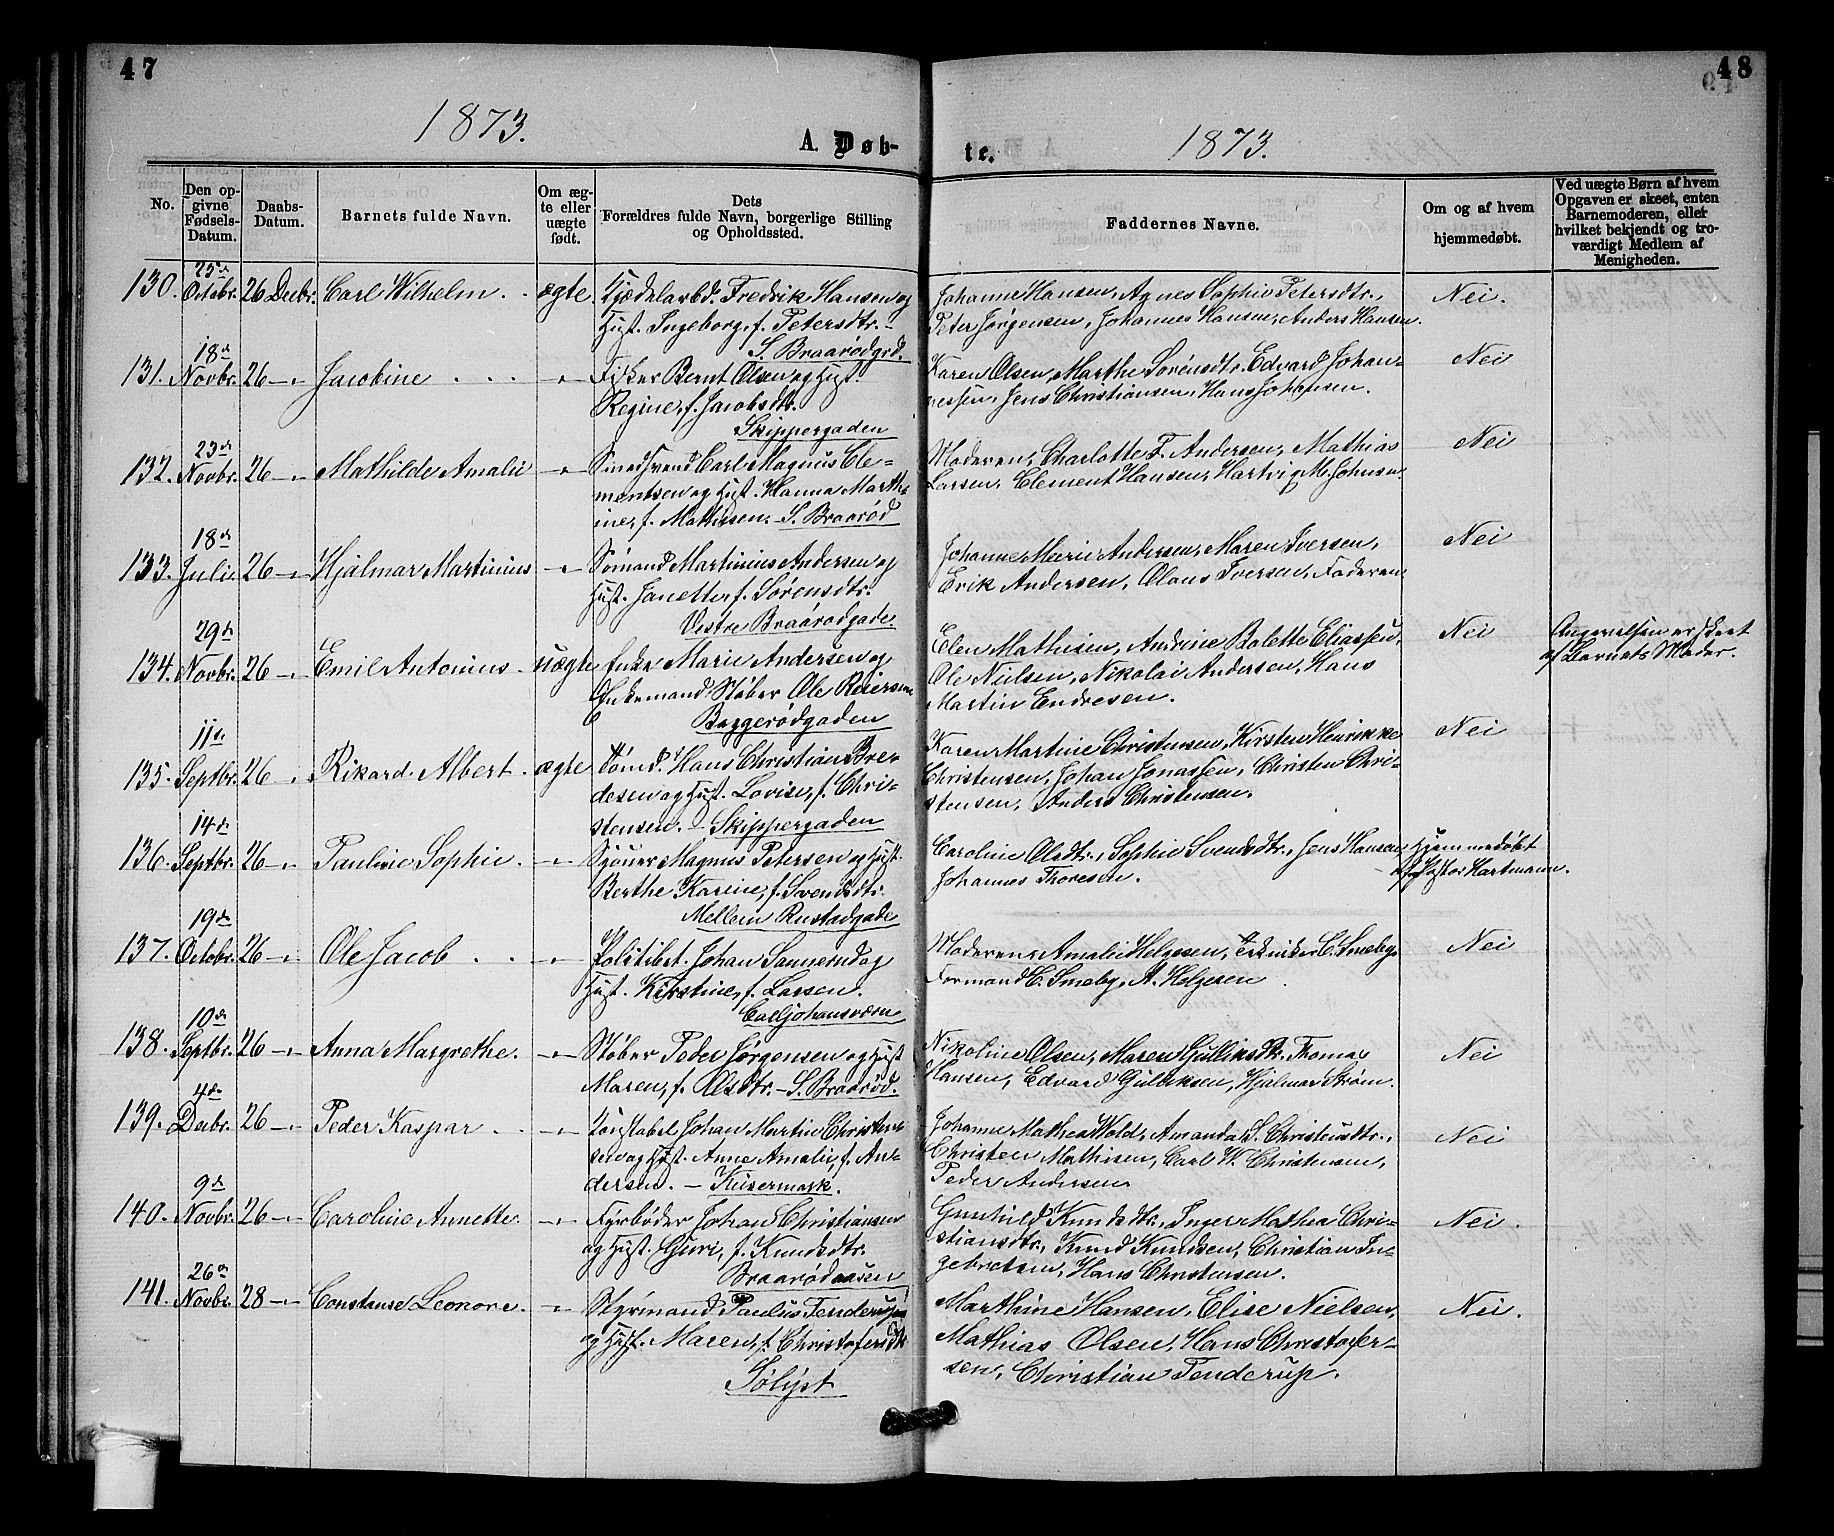 47
1873.
A. Døb-
No.
Den op-
givne
Fødsels-
Datum.
Daabs-
Datum.
Barnets fulde Navn.
Om æg-
te eller
uægte
født.
Dets
Forældres fulde Navn, borgerlige Stilling
og Opholdssted.
130. 25de Octobr. 26 Decbr. Carl Wilhelm ægte Fredrik Hansen og
Hust. Ingeborg, f. Petersdtr. -
S. Braarødgd.
131. 18de Novbr. 26 -"- Jacobine . . . -"- Fisker Bernt Olsen og Hust.
Regine, f. Jacobsdtr.
Skippergaden
132. 23de Novbr. 26 -"- Mathilde Amalie -"- Smedsvend Carl Magnus Cle-
mentsen og Hust. Hanna Marth-
ine, f. Mathisen. - S. Braarød
133. 18de Juli. 26 -"- Hjalmar Martinius -"- Sømand Martinius Andersen og
Hust. Janette, f. Sørensdtr.
Vestre Braarødgade.
134. 29de Novbr. 26 -"- Emil Antonius uægte Enke Marie Andersen og
Enkemand Støber Ole Reiersen
Baggerødgaden
135. 11te Septbr. 26 -"- Rikard Albert ægte Tømd. Hans Christian Bre-
desen og Hust. Lovise, f. Chri-
stensen. - Skippergaden
136. 14de Septbr. 26 -"- Pauline Sophie -"- Sjouer Magnus Petersen og Hust.
Berthe Karine, f. Svendsdtr.
Mellem Rustadgade
137. 19de Octobr. 26 -"- Ole Jacob . . -"- Politibet. Johan Sannerud og
Hust. Kirstine, f. Larsen.
Carljohansværn
138. 10de Septbr. 26 -"- Anna Margrethe. -"- Støber Peder Jørgensen og Hust
Maren, f. Olsdtr. - S. Braarød.
139. 4de Decbr. 26 -"- Peder Kaspar . . -"- Konstabel Johan Martin Christen-
sen og Hust. Anne Amalie, f. An-
dersen. - Keisermark.
140. 9de Novbr. 26 -"- Caroline Annette -"- Fyrbøder Johan Christiansen
og Hust. Guri, f. Knudsdtr.
Braarødaasen
141. 26de Novbr. 28 -"- Constanse Leonore. -"- Styrmand Paulus Tenderup
og Hust. Maren, f. Christofersdtr
Sølyst
48
te.
1873.
Faddernes Navne.
Om og af hvem
hjemmedøbt.
Ved uægte Børn af hvem
Opgaven er skeet, enten
Barnemoderen, eller
hvilket bekjendt og tro-
værdigt Medlem af
Menigheden.
Johanne Hansen, Agnes Sophie Petersdtr., Nei.
Peter Jørgensen, Johannes Hansen, Anders Hansen.
Karen Olsen, Marthe Sørensdtr. Edvard Johan- Nei
nessen, Jens Christiansen, Hans Johansen.
Moderen, Charlotte F. Andersen, Mathias Nei
Larsen, Clement Hansen, Hartvig M. Johnsen
Johanne Marie Andersen, Maren Iversen, Nei
Erik Andersen, Olaus Iversen, Faderen
Elen Mathisen, Andrine Bolette Eliassen, Nei Angivelsen er skeet
Ole Nielsen, Nikolai Andersen, Hans af Barnets Moder.
Martin Endresen.
Karen Martine Christensen, Kirsten Henrikke Nei
Christensen, Johan Jonassen, Christen Chri-
stensen, Anders Christensen.
Caroline Olsdtr., Sophie Svendsdtr., Jens Hansen, Hjemmedøbt
Johannes Thoresen. af Pastor Hartmann.
Moderen, Amalie Helgesen, Tekniker C. Smeby, Nei
Formand H. Smeby, A. Helgesen.
Nikoline Olsen, Maren Gulliksdtr. Thomas Nei
Hansen, Edvard Gulliksen, Hjalmar Strøm.
Johanne Mathea Wold, Amanda S. Christensdtr., Nei
Christen Mathisen, Carl W. Christensen,
Peder Andersen
Gunhild Knudsdtr., Inger Mathea Chri- Nei.
stiansdtr., Knud Knudsen, Christian In-
gebretsen, Hans Christensen.
Marthine Hansen, Elise Nielsen, Nei.
Mathias Olsen, Hans Christofer-
sen, Christian Tenderup.